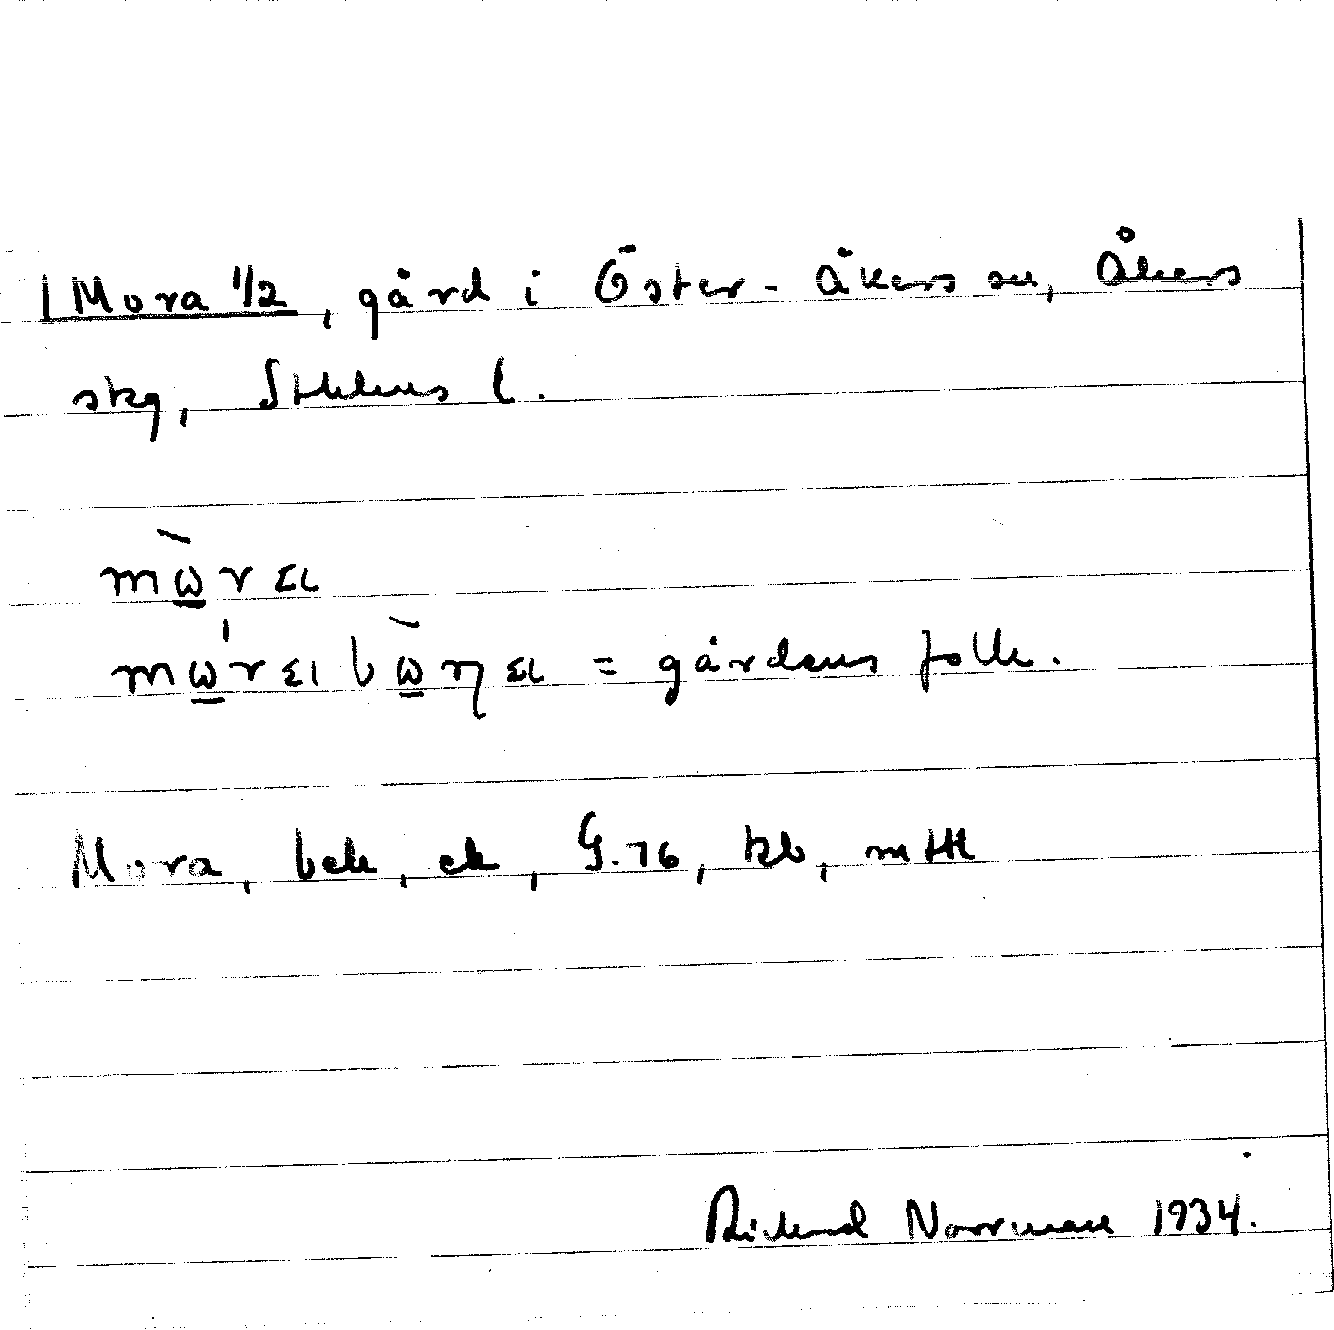 Mora 1/2, gård i Öster-Åkers sn, Åkers
skg, Sthlms l.
mὼra
mώra bὼηa = gårdens folk.
Mora, bek, ek, G.76, kb, mtl
Rickard Norrman 1934.